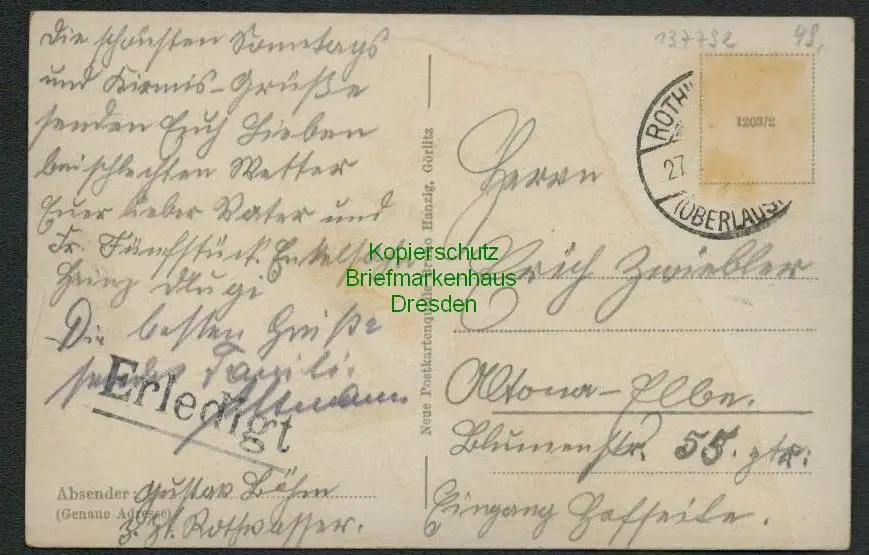 137792 49,
Die schönsten Sonntags
und Kirmis-Grüße
senden Euch Lieben
bei schlechten Wetter
Euer lieber Vater und
Fr. Fünfstück. Enkelsohn
Heinz
Die besten Grüße
sendet Familie
Erledigt
Absender: Gustav Böhm
(Genaue Adresse)
z. Zt. Rothwasser.
Neue Postkartenquelle Bruno Hanzig, Görlitz
ROTHW
27.
(OBERLAUS.
1203/2
Herrn
Erich Zwiebler
Altona-Elbe.
Blumenstr. 55. ptr.
Eingang Hofseite.
Kopierschutz
Briefmarkenhaus
Dresden